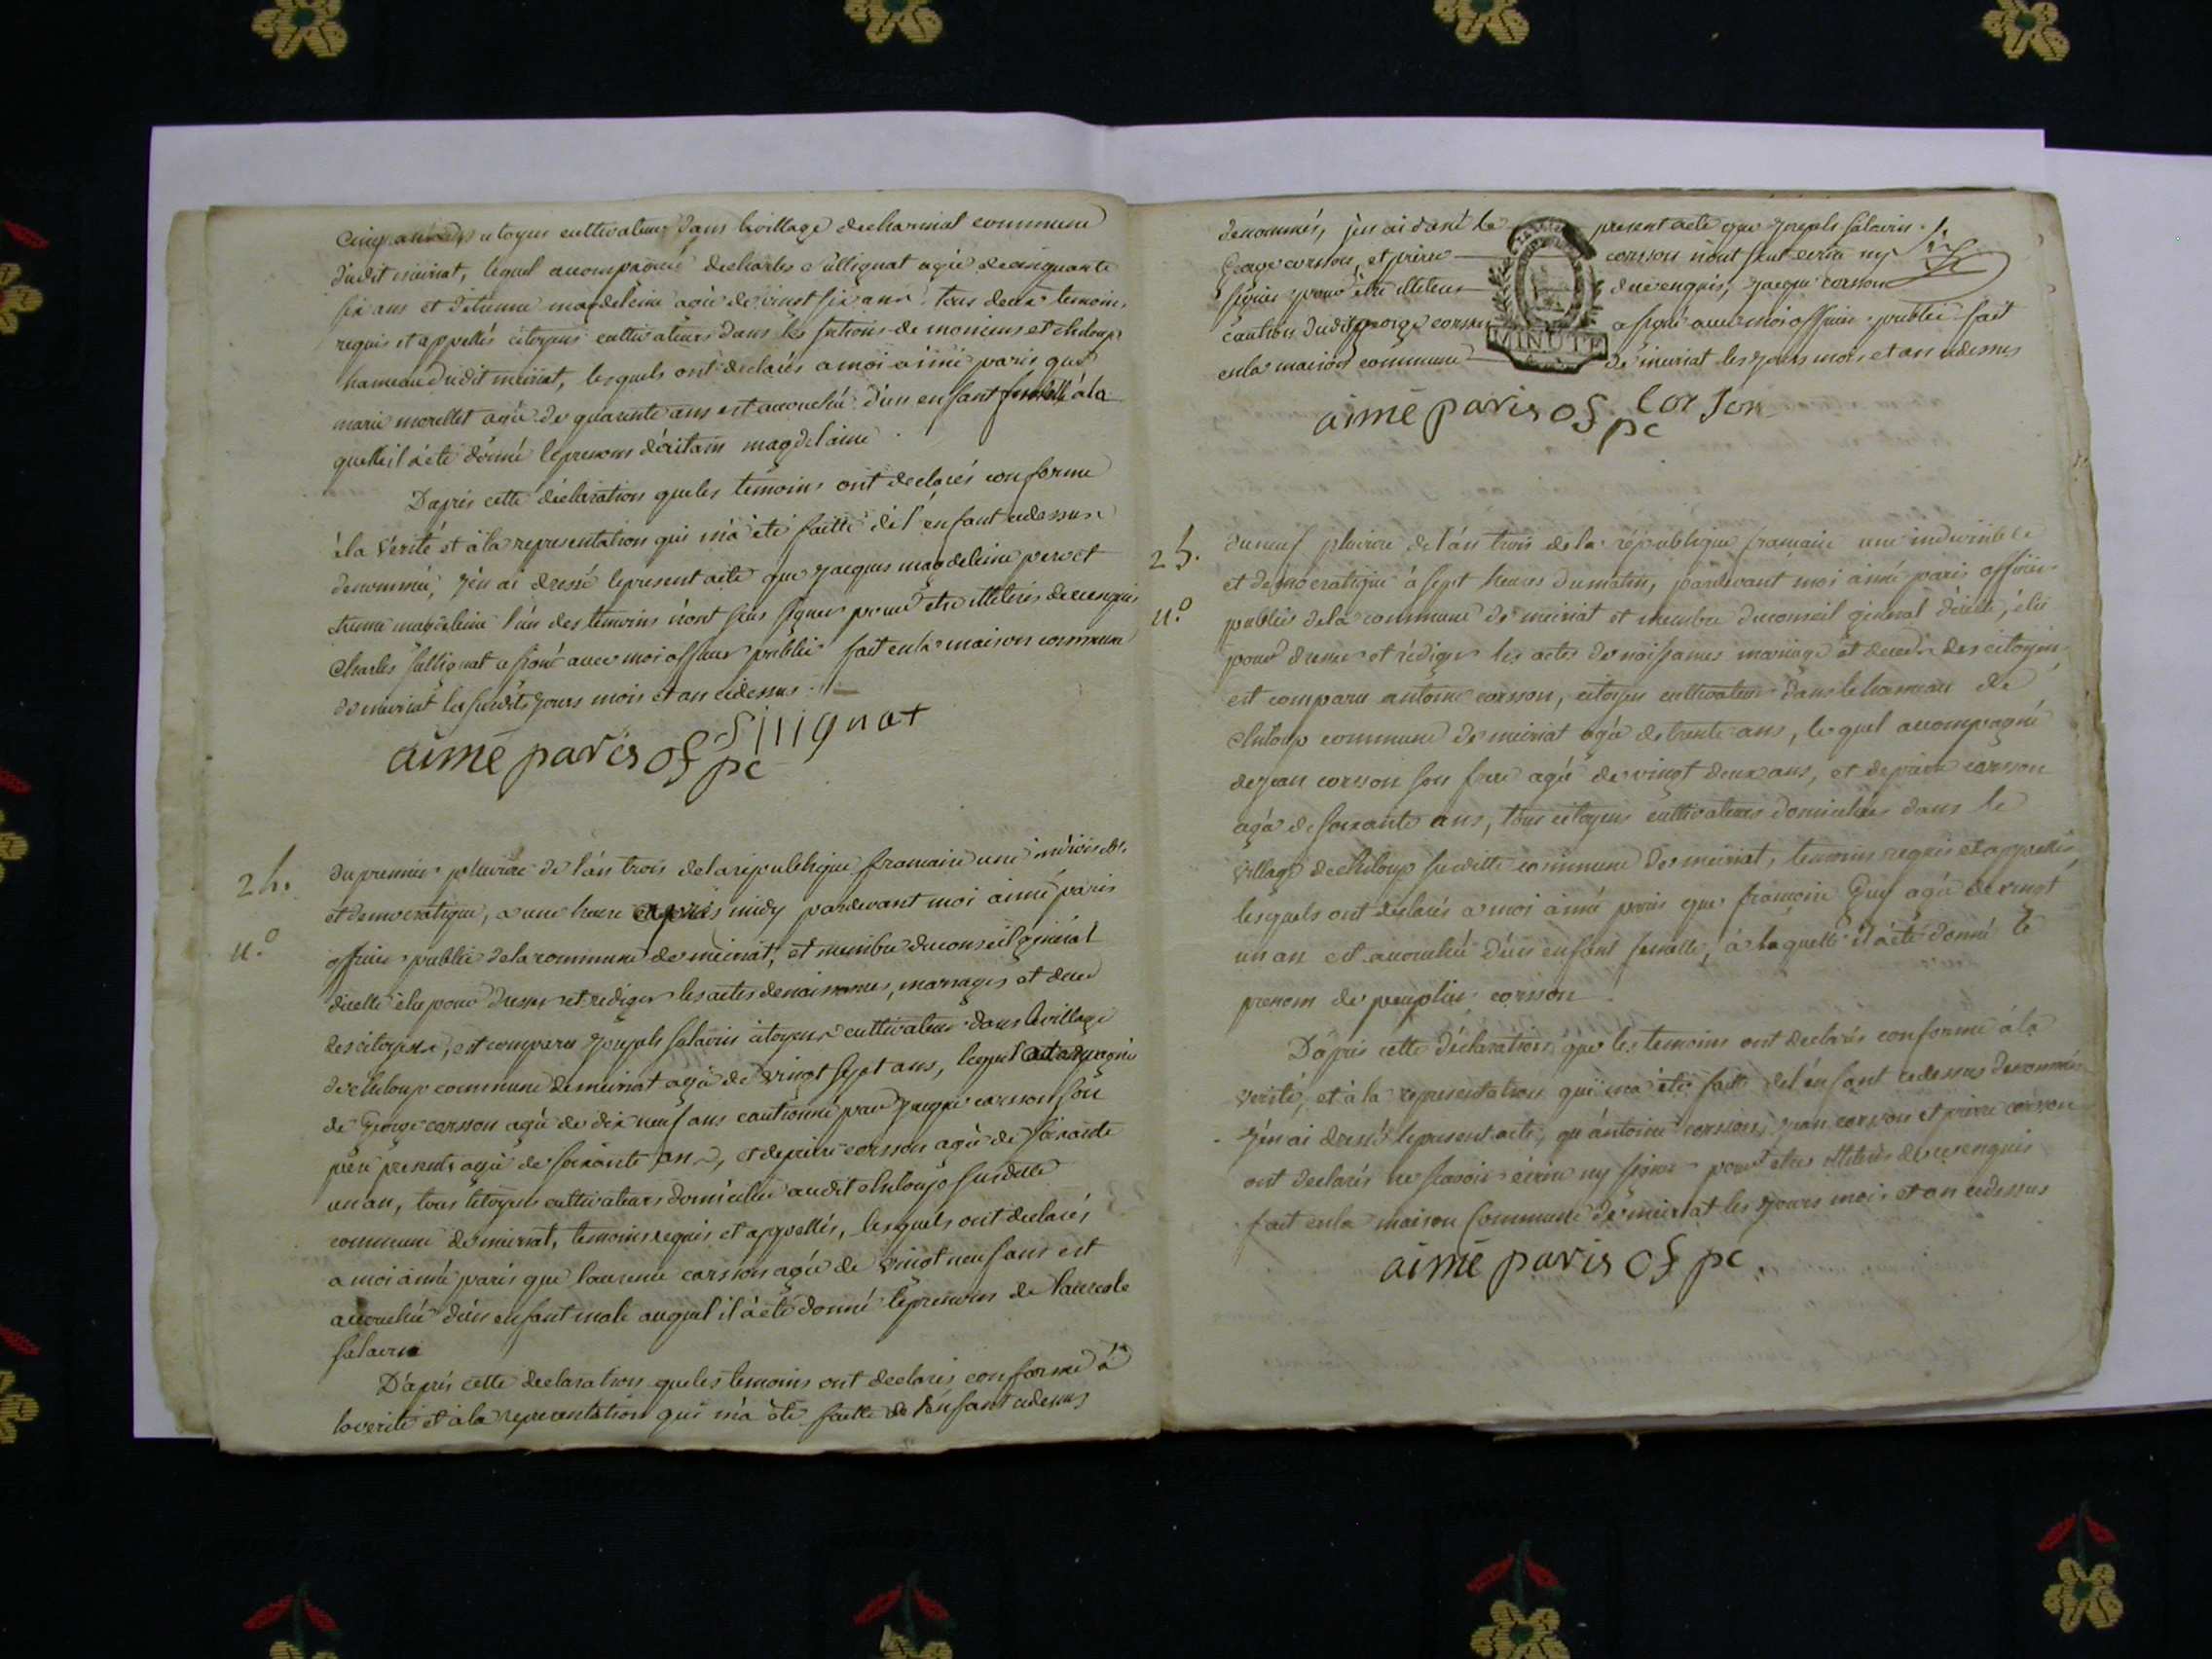 cinq ans citoyen cultivateur dans le village de charinat commune
dudit meiriat, lequel accompagné de charles Sillignat agé de cinquante
six ans et detienne magdeleine agé de vingt six ans tous deux temoins
requis et appellés citoyens cultivateurs dans les sections de et chiloup
hameau dudit meiriat, lesquels ont déclarés a moi aimé paris que
marie morellet agée de quarente ans est accouchée d'un enfant femelle à la
quelle il à eté donné le prenom magdelaine
D'aprés cette déclaration que les temoins ont declarés conforme
à la verité et à la representation qui m'a été faitte de l'enfant cidessus
denommée, j'en ai dressé le present acte que jacques magdeleine pere et
etienne magdeleine l'un des temoins n'ont seus signer pour etre illeterés de ce enquis
charles Sillignat a signé avec moi officier public fait en la maison commune
de meiriat les susdits jours mois et an cidessus
Sillignat
aimé paris of pc
24.
n.°
du premier pluviose de l'an trois de la republique francaise une indivisible
et democratique, a une heure aprés midy pardevant moi aimé paris
officier public de la commune de meiriat, et membre du conseil général
dicelle élu pour dresser et rediger les actes de naissances, marriages et deces
des citoyens, est comparu joseph salavin citoyen cultivateur dans le village
de chiloup commune de meiriat agé de vingt sept ans, lequel accompagné
de George corsson agé de dix neuf ans cautionné par jacque corsson son
pere present agé de soixante ans, et de pierre corsson agé de soixante
un an, tous citoyens cultivateurs domiciliés audit chiloup susditte
commune de meiriat, temoins requis et appellés, lesquels ont declarés
a moi aimé paris que laurence corsson agée de vingt neuf ans est
accouchée d'un enfant male auquel il à eté donné le prenom de
salavin
D'aprés cette declaration que les temoins ont declarés conforme à
la verité et à la representation qui m'a été faitte de l'enfant cidessus
denommés, j'en ai dressé le present acte que joseph salavin
George corsson, et pierre corsson n'ont seut ecrire ny
signer pour être illeterés de ce enquis, jacque corsson
caution dudit george corsson a signé avec moi officier public fait
en la maison commune de meiriat les jours mois et an cidessus
MINUTE
aimé paris of pc Corson
25.
n.°
du neuf pluviose de l'an trois de la république francaise une indivisible
et démocratique à sept heures du matin, pardevant moi aimé paris officier
public de la commune de meiriat et membre du conseil general d'icelle, élu
pour dresser et rédiger les actes de naissances mariage et deces des citoyens
est comparu antoine corsson, citoyen cultivateur dans le hameau de
chiloup commune de meiriat agé de trente ans, lequel accompagné
de jean corsson son frere agé de vingt deux ans, et de pierre corsson
agé de soixante ans, tous citoyens cultivateurs domiciliés dans le
village de chiloup susditte commune de meiriat, temoins requis et appellés
lesquels ont declarés a moi aimé paris que francoise Guy agée de vingt
un an est accouchée d'un enfant femelle, à laquelle il à été donné le
prenom de corsson
D'aprés cette déclaration que les temoins ont declarés conforme à la
verité, et à la representation qui m'a été faitte de l'enfant cidessus denommée
j'en ai dressé le present acte, qu'antoine corsson, jean corsson et pierre corsson
ont declarés ne scavoir écrire ny signer pour etres illiterés de ce enquis
fait en la maison commune de meiriat les jours mois et an cidessus
aimé paris of pc.